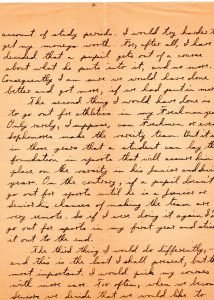 account of study periods. I would try harder to
get my moneys worth. For, after all, I have
decided that a pupil gets out of a course
about what he puts into it, and no more.
Consequently I am sure we would have done
better and got more, if we had put in more.
The second thing I would have done is
to go out for athletics in my Freshman year.
Only rarely, I suppose, can Freshmen or even
Sophomores make the varsity team. But it is
in those years that a student can lay the
foundation in sports that will assure him a
place on the varsity in his junior and senior
years. On the contrary, if a pupil doesn't
go out for sports until he is a junior or
senior his chances of making the team are
very remote. So if I were doing it again I'd
go out for sports in my first year and stick
it out to the end.
The third thing I would do differently,
and this is the last I shall present, but the
most important. I would pick my courses
with more care. Too often, when we become
seniors we decide that we would like to